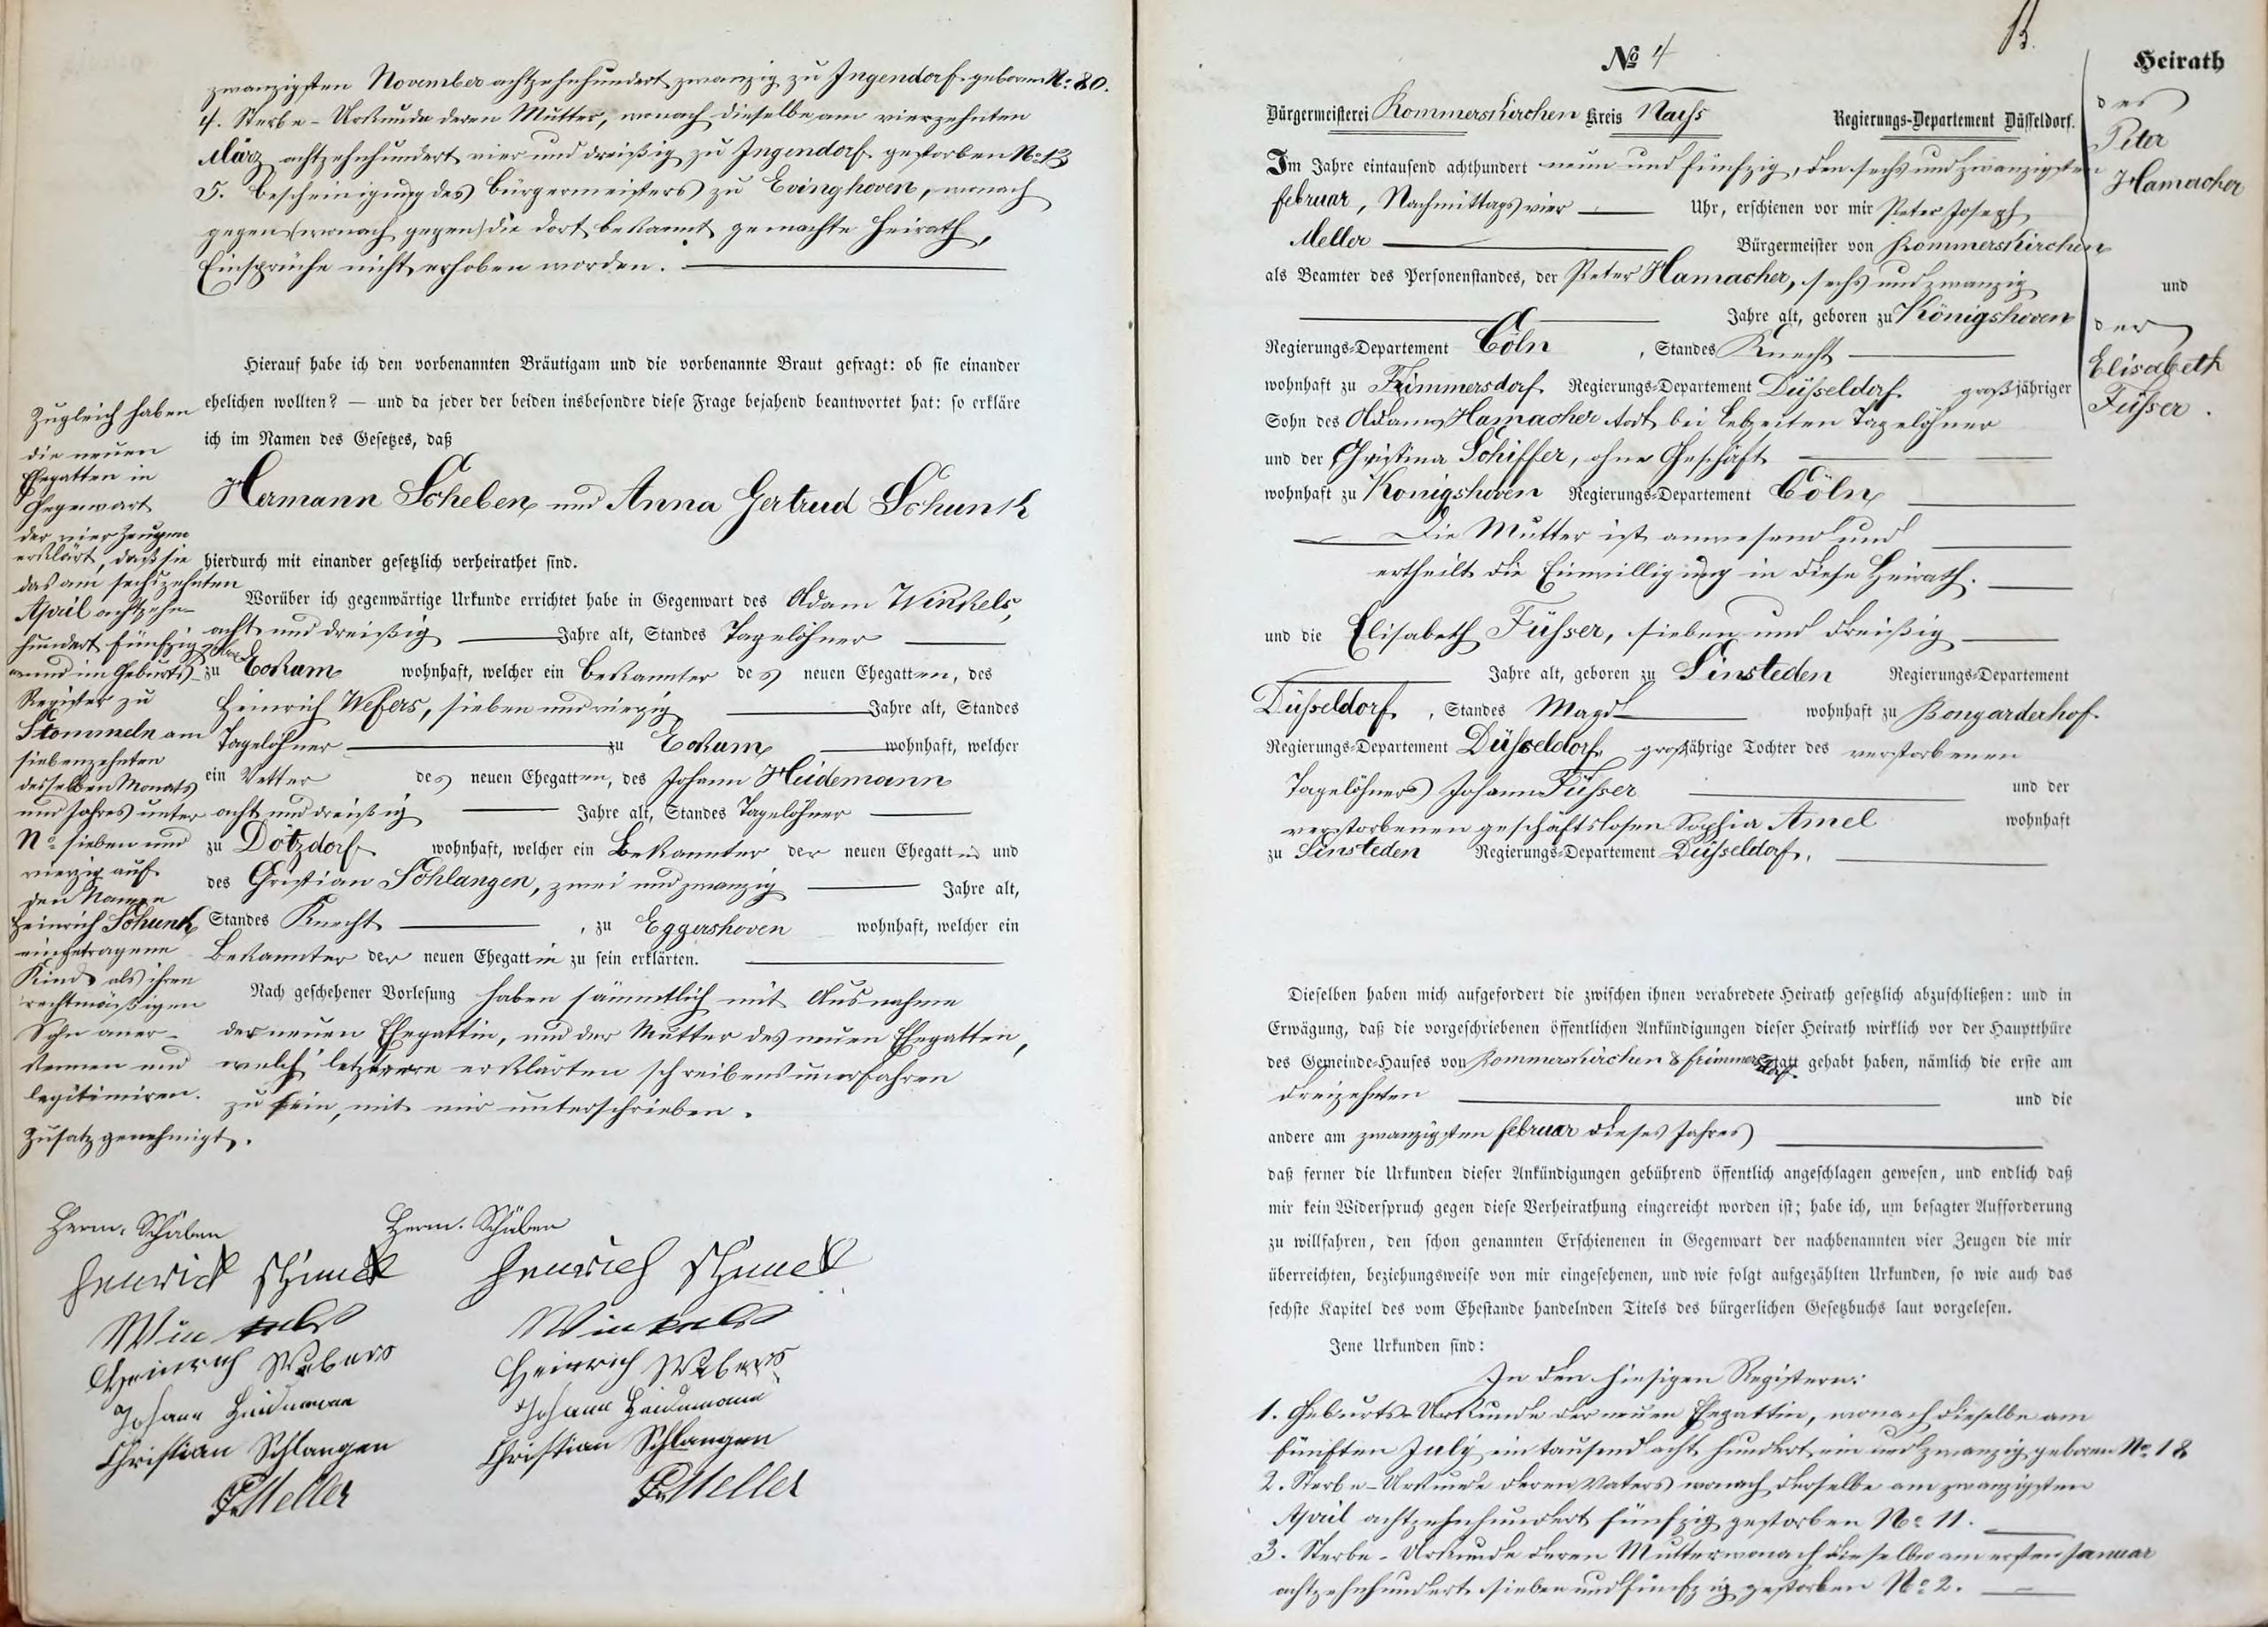 zwanzigsten November achtzehnhundert zwanzig zu Ingendorf geboren No: 80.
4. Sterbe-Urkunde deren Mutter, wonach dieselbe am vierzehnten
März achtzehnhundert vier und dreißig zu Ingendorf gestorben No 13
5. Bescheinigung des Bürgermeisters zu Evinghoven, wonach
gegen (wonach gegen) die dort bekannt gemachte Heirath,
Einsprüche nicht erhoben worden.
Hierauf habe ich den vorbenannten Bräutigam und die vorbenannte Braut gefragt: ob sie einander
ehelichen wollten? — und da jeder der beiden insbesondre diese Frage bejahend beantwortet hat: so erkläre
ich im Namen des Gesetzes, daß
Hermann Scheben und Anna Gertrud Schunk
hierdurch mit einander gesetzlich verheirathet sind.
Worüber ich gegenwärtige Urkunde errichtet habe in Gegenwart des Adam Winkels,
acht und dreißig Jahre alt, Standes Tagelöhner
zu Eckum wohnhaft, welcher ein Bekannter des neuen Ehegatten, des
Heinrich Wefers, sieben und vierzig Jahre alt, Standes
Tagelöhner zu Eckum wohnhaft, welcher
ein Vetter des neuen Ehegatten, des Johann Heidemann
acht und dreißig Jahre alt, Standes Tagelöhner
zu Dötzdorf wohnhaft, welcher ein Bekannter der neuen Ehegattin und
des Christian Schlangen, zwei und zwanzig Jahre alt,
Standes Knecht, zu Eggershoven wohnhaft, welcher ein
Bekannter der neuen Ehegattin zu sein erklärten.
Nach geschehener Vorlesung haben sämmtlich mit Ausnahme
der neuen Ehegattin, und der Mutter des neuen Ehegatten,
welch' letztere erklärten schreibensunerfahren
zu sein, mit mir unterschrieben.
Zugleich haben
die neuen
Ehegatten in
Gegenwart
der vier Zeugen
erklärt, daß sie
das am sechszehnten
April achtzehn-
hundert fünfzig
und im Geburts-
Register zu
Stommeln am
siebenzehnten
desselben Monats
und Jahres unter
No sieben und
vierzig auf
den Namen
Heinrich Schunk
eingetragene
Kind als ihren
rechtmäßigen
Sohn aner-
kennen und
legitimiren.
Zusatz genehmigt.
Herm. Schäben Herm. Schäben
Heinrich Schunck Heinrich Schunck
Winkels Winkels
Heinrich Webers Heinrich Webers
Johann Heidemann Johann Heidemann
Christian Schlangen Christian Schlangen
Meller Meller
No 4
Heirath
des
Peter
Hamacher
und
der
Elisabeth
Füsser.
Bürgermeisterei Rommerskirchen Kreis Neuss Regierungs-Departement Düsseldorf.
Im Jahre eintausend achthundert neun und fünfzig, den sechs und zwanzigsten
Februar, Nachmittags vier Uhr, erschienen vor mir Peter Joseph
Meller Bürgermeister von Rommerskirchen
als Beamter des Personenstandes, der Peter Hamacher, sechs und zwanzig
Jahre alt, geboren zu Königshoven
Regierungs-Departement Cöln, Standes Knecht
wohnhaft zu Frimmersdorf Regierungs-Departement Düsseldorf großjähriger
Sohn des Adam Hamacher todt, bei Lebzeiten Tagelöhner
und der Christina Schiffer, ohne Geschäft
wohnhaft zu Königshoven Regierungs-Departement Cöln
Die Mutter ist anwesend und
ertheilt die Einwilligung in diese Heirath.
und die Elisabeth Füsser, sieben und dreißig
Jahre alt, geboren zu Sinsteden Regierungs-Departement
Düsseldorf, Standes Magd wohnhaft zu Bongarderhof
Regierungs-Departement Düsseldorf großjährige Tochter des verstorbenen
Tagelöhners Johann Füsser und der
verstorbenen geschäftslosen Sophia Amel wohnhaft
zu Sinsteden Regierungs-Departement Düsseldorf,
Dieselben haben mich aufgefordert die zwischen ihnen verabredete Heirath gesetzlich abzuschließen: und in
Erwägung, daß die vorgeschriebenen öffentlichen Ankündigungen dieser Heirath wirklich vor der Hauptthüre
des Gemeinde-Hauses von Rommerskirchen & Frimmersdorf Statt gehabt haben, nämlich die erste am
dreizehnten und die
andere am zwanzigsten Februar dieses Jahres
daß ferner die Urkunden dieser Ankündigungen gebührend öffentlich angeschlagen gewesen, und endlich daß
mir kein Widerspruch gegen diese Verheirathung eingereicht worden ist; habe ich, um besagter Aufforderung
zu willfahren, den schon genannten Erschienenen in Gegenwart der nachbenannten vier Zeugen die mir
überreichten, beziehungsweise von mir eingesehenen, und wie folgt aufgezählten Urkunden, so wie auch das
sechste Kapitel des vom Ehestande handelnden Titels des bürgerlichen Gesetzbuchs laut vorgelesen.
Jene Urkunden sind:
In den hiesigen Registern:
1. Geburts-Urkunde der neuen Ehegattin, wonach dieselbe am
fünften July ein tausend acht hundert ein und zwanzig geboren No 18
2. Sterbe-Urkunde deren Vaters wonach derselbe am zwanzigsten
April achtzehnhundert fünfzig gestorben No 11.
3. Sterbe-Urkunde deren Mutter wonach dieselbe am ersten Januar
achtzehnhundert sieben und fünfzig gestorben No 2.